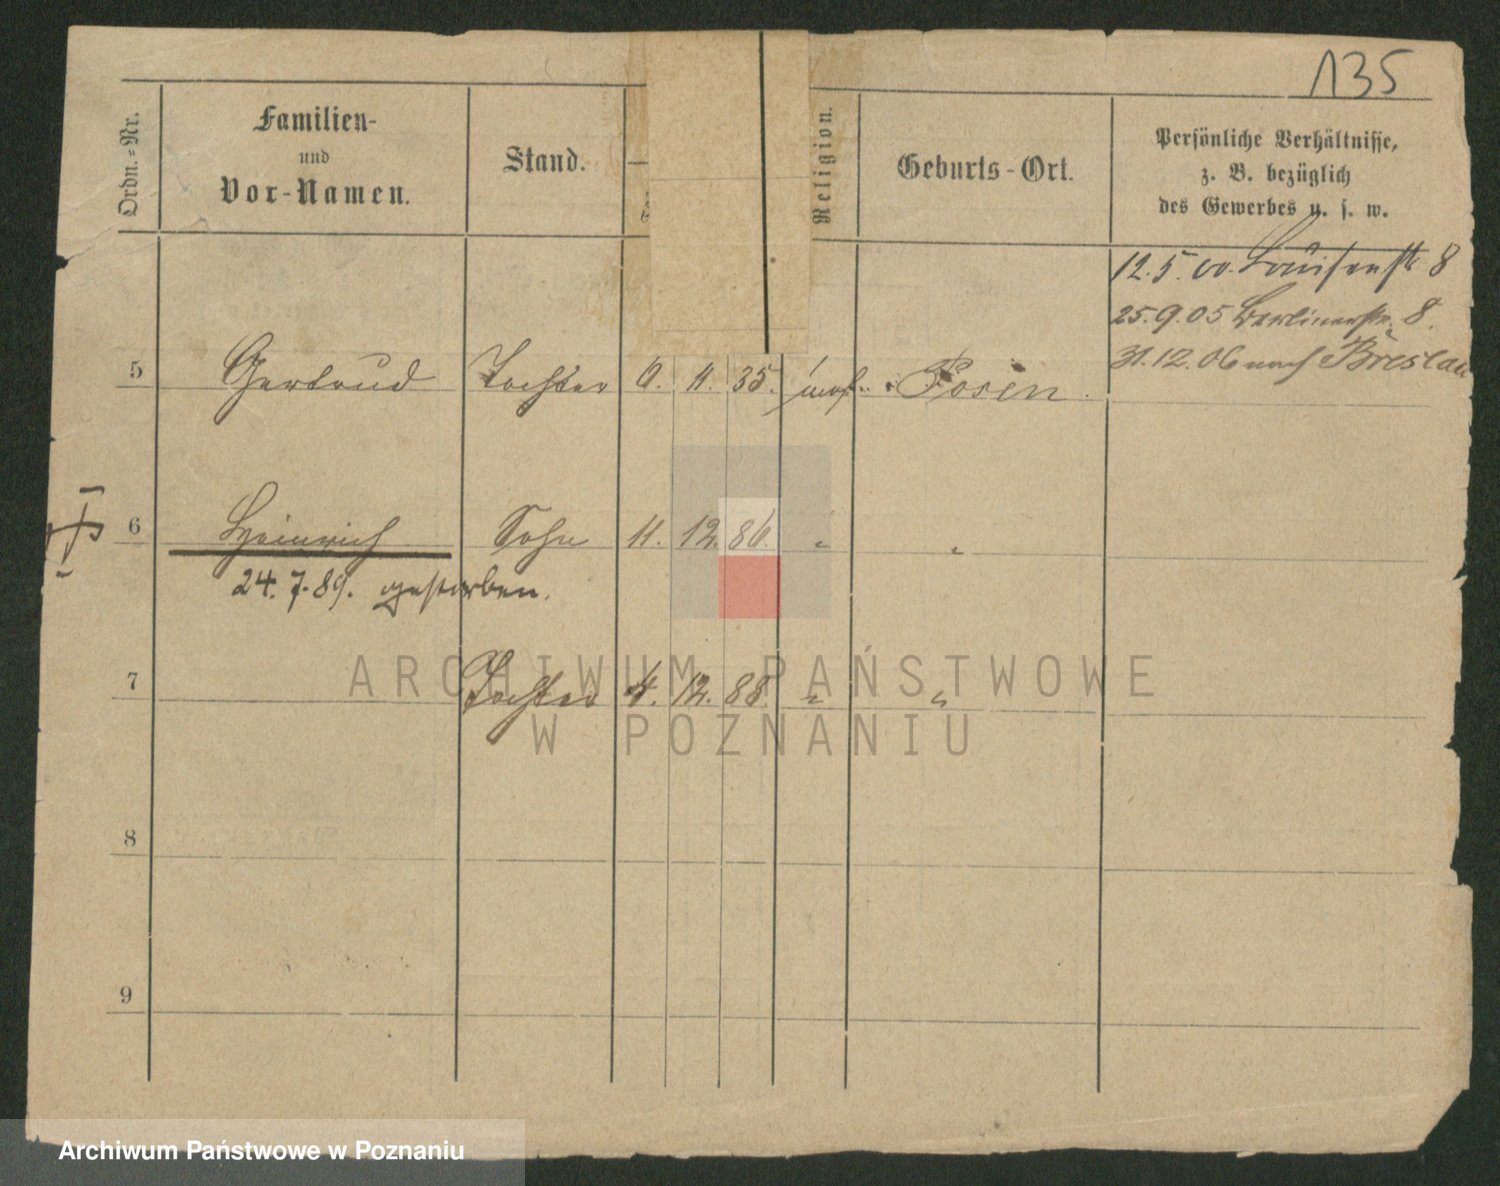 135
Ordn.-Nr.
Familien-
und
Vor-Namen.
Stand.
Religion.
Geburts-Ort.
Persönliche Verhältnisse,
z. B. bezüglich
des Gewerbes u. s. w.
12.5.00. Louisenstr 8
25.9.05 Berlinerstr. 8.
31.12.06 nach Breslau
5 Gertrud Tochter 6. 11. 35. mos. Posen.
6 Heinrich Sohn 11. 12. 86. " "
24.7.89. gestorben.
7 Tochter 4. 12. 88. " "
8
9
ARCHIWUM PAŃSTWOWE
W POZNANIU
Archiwum Państwowe w Poznaniu